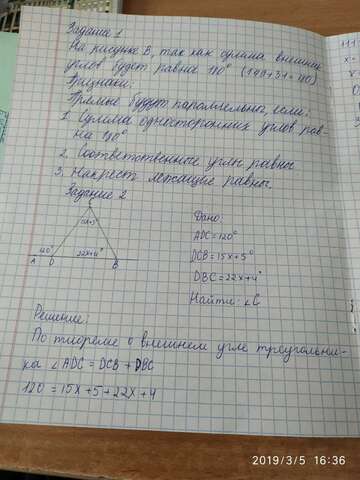 Задание 1
На рисунке В, так как сумма внешних
углов будет равна 180° (149+31=180)
Признаки:
Прямые будут параллельны, если:
1. Сумма односторонних углов рав-
на 180°
2. Соответственные углы равны
3. Накрест лежащие равны.
Задание 2
C
15x+5°
120°
22x+4°
A
D
B
Дано:
ADC=120°
DCB=15x+5°
DBC=22x+4°
Найти: ∠C
Решение:
По теореме о внешнем угле треугольни-
ка ∠ADC = DCB + DBC
120 = 15x+5+22x+4
2019/3/5 16:36